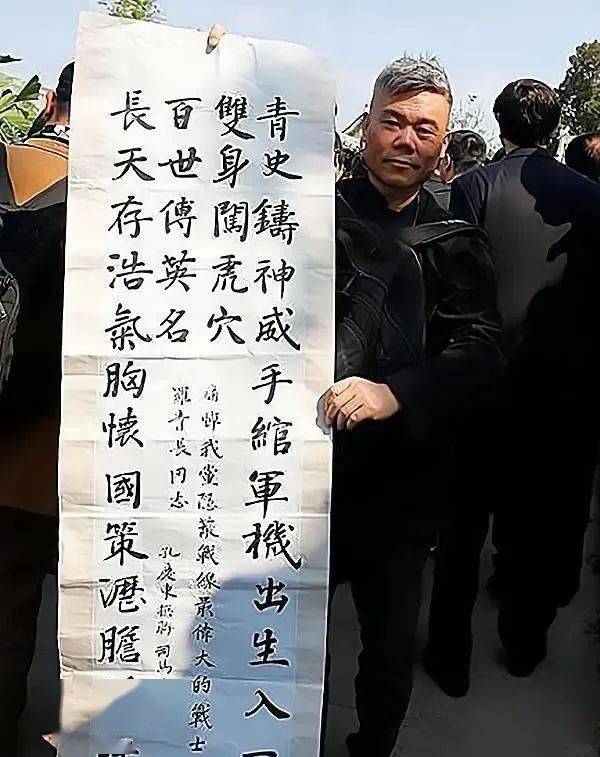 青史鑄神威手綰軍機出生入
雙身闖虎穴
痛悼我黨隱蔽戰線最偉大的戰士
羅青長同志
孔慶東撰聯司馬
百世傳英名
長天存浩氣胸懷國策瀝膽